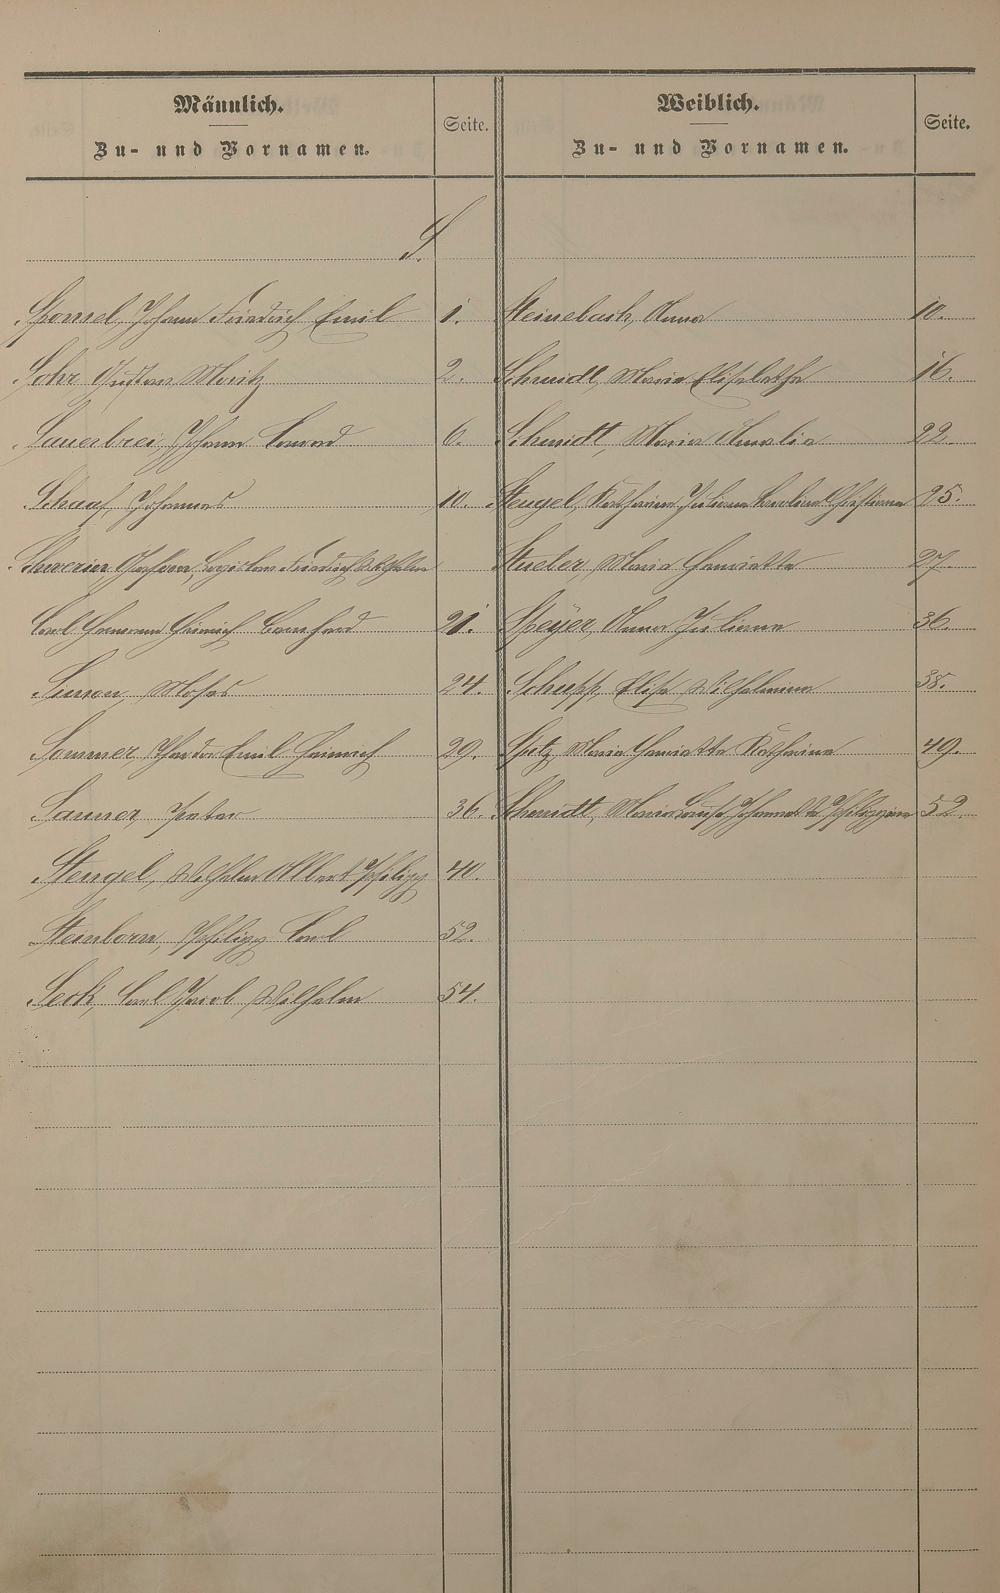 Männlich.
Zu- und Vornamen.
Seite.
Weiblich.
Zu- und Vornamen.
Seite.
S.
Sponsel, Johann Friedrich Emil 1.
Sohr, Gustav Moritz 2.
Sauerbrei, Johann Conrad 6.
Schaaf, Johannes 10.
Schwerin, Friedrich Wilhelm
Carl Hermann Heinrich Bernhard 21.
Simon, Moses 24.
Sommer, Theodor Emil Heinrich 29.
Sauner, Peter 36.
Stengel, Wilhelm Albert Philipp 40.
Steinborn, Philipp Carl 52.
Seck, Carl Jacob Wilhelm 54.
Steinebach, Anna 10.
Schmidt, Maria Elisabethe 16.
Schmidt, Maria Amalia 22.
Stengel, Katharina Juliane Karoline Christiane 25.
Stueler, Maria Henriette 27.
Speÿer, Anna Juliane 36.
Schupp, Elise Wilhelmine 38.
Spitz, Maria Henriette Katharina 49.
Schmidt, Maria Louise Johannette Philippine 52.